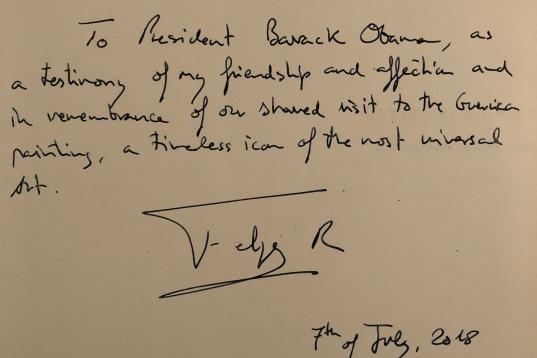 To President Barack Obama, as
a testimony of my friendship and affection and
in remembrance of our shared visit to the Guernica
painting, a timeless icon of the most universal
Art.
Felipe R
7th of July, 2018